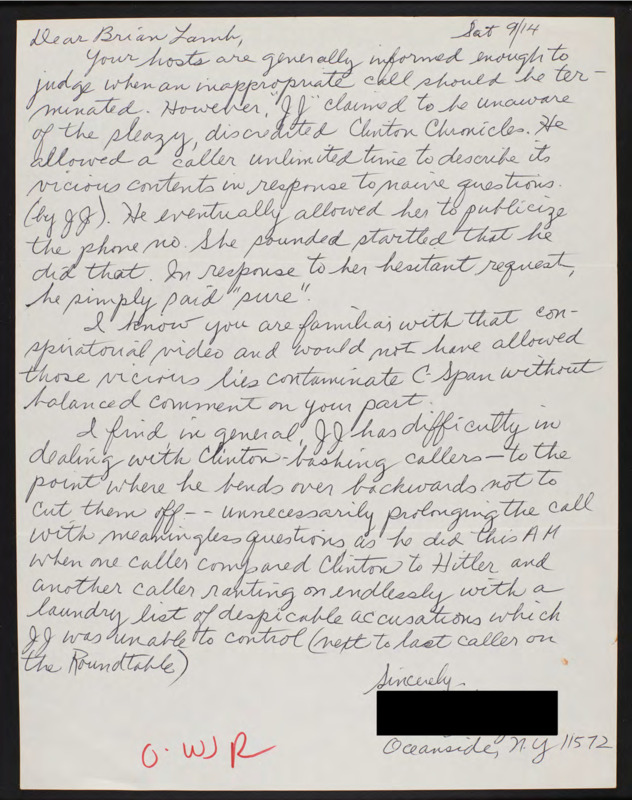 Sat 9/14
Dear Brian Lamb,
Your hosts are generally informed enough to
judge when an inappropriate call should be ter-
minated. However, "JJ" claimed to be unaware
of the sleazy, discredited Clinton Chronicles. He
allowed a caller unlimited time to describe its
vicious contents in response to naive questions.
(by JJ). He eventually allowed her to publicize
the phone no. She sounded startled that he
did that. In response to her hesitant request,
he simply said "sure".
I know you are familiar with that con-
spiratorial video and would not have allowed
those vicious lies contaminate C Span without
balanced comment on your part.
I find in general, JJ has difficulty in
dealing with Clinton-bashing callers—to the
point where he bends over backwards not to
cut them off-- unnecessarily prolonging the call
with meaningless questions as he did this AM
when one caller compared Clinton to Hitler and
another caller ranting on endlessly with a
laundry list of despicable accusations which
JJ was unable to control (next to last caller on
the Roundtable)
Sincerely,
Oceanside, N.Y 11572
O-WJR